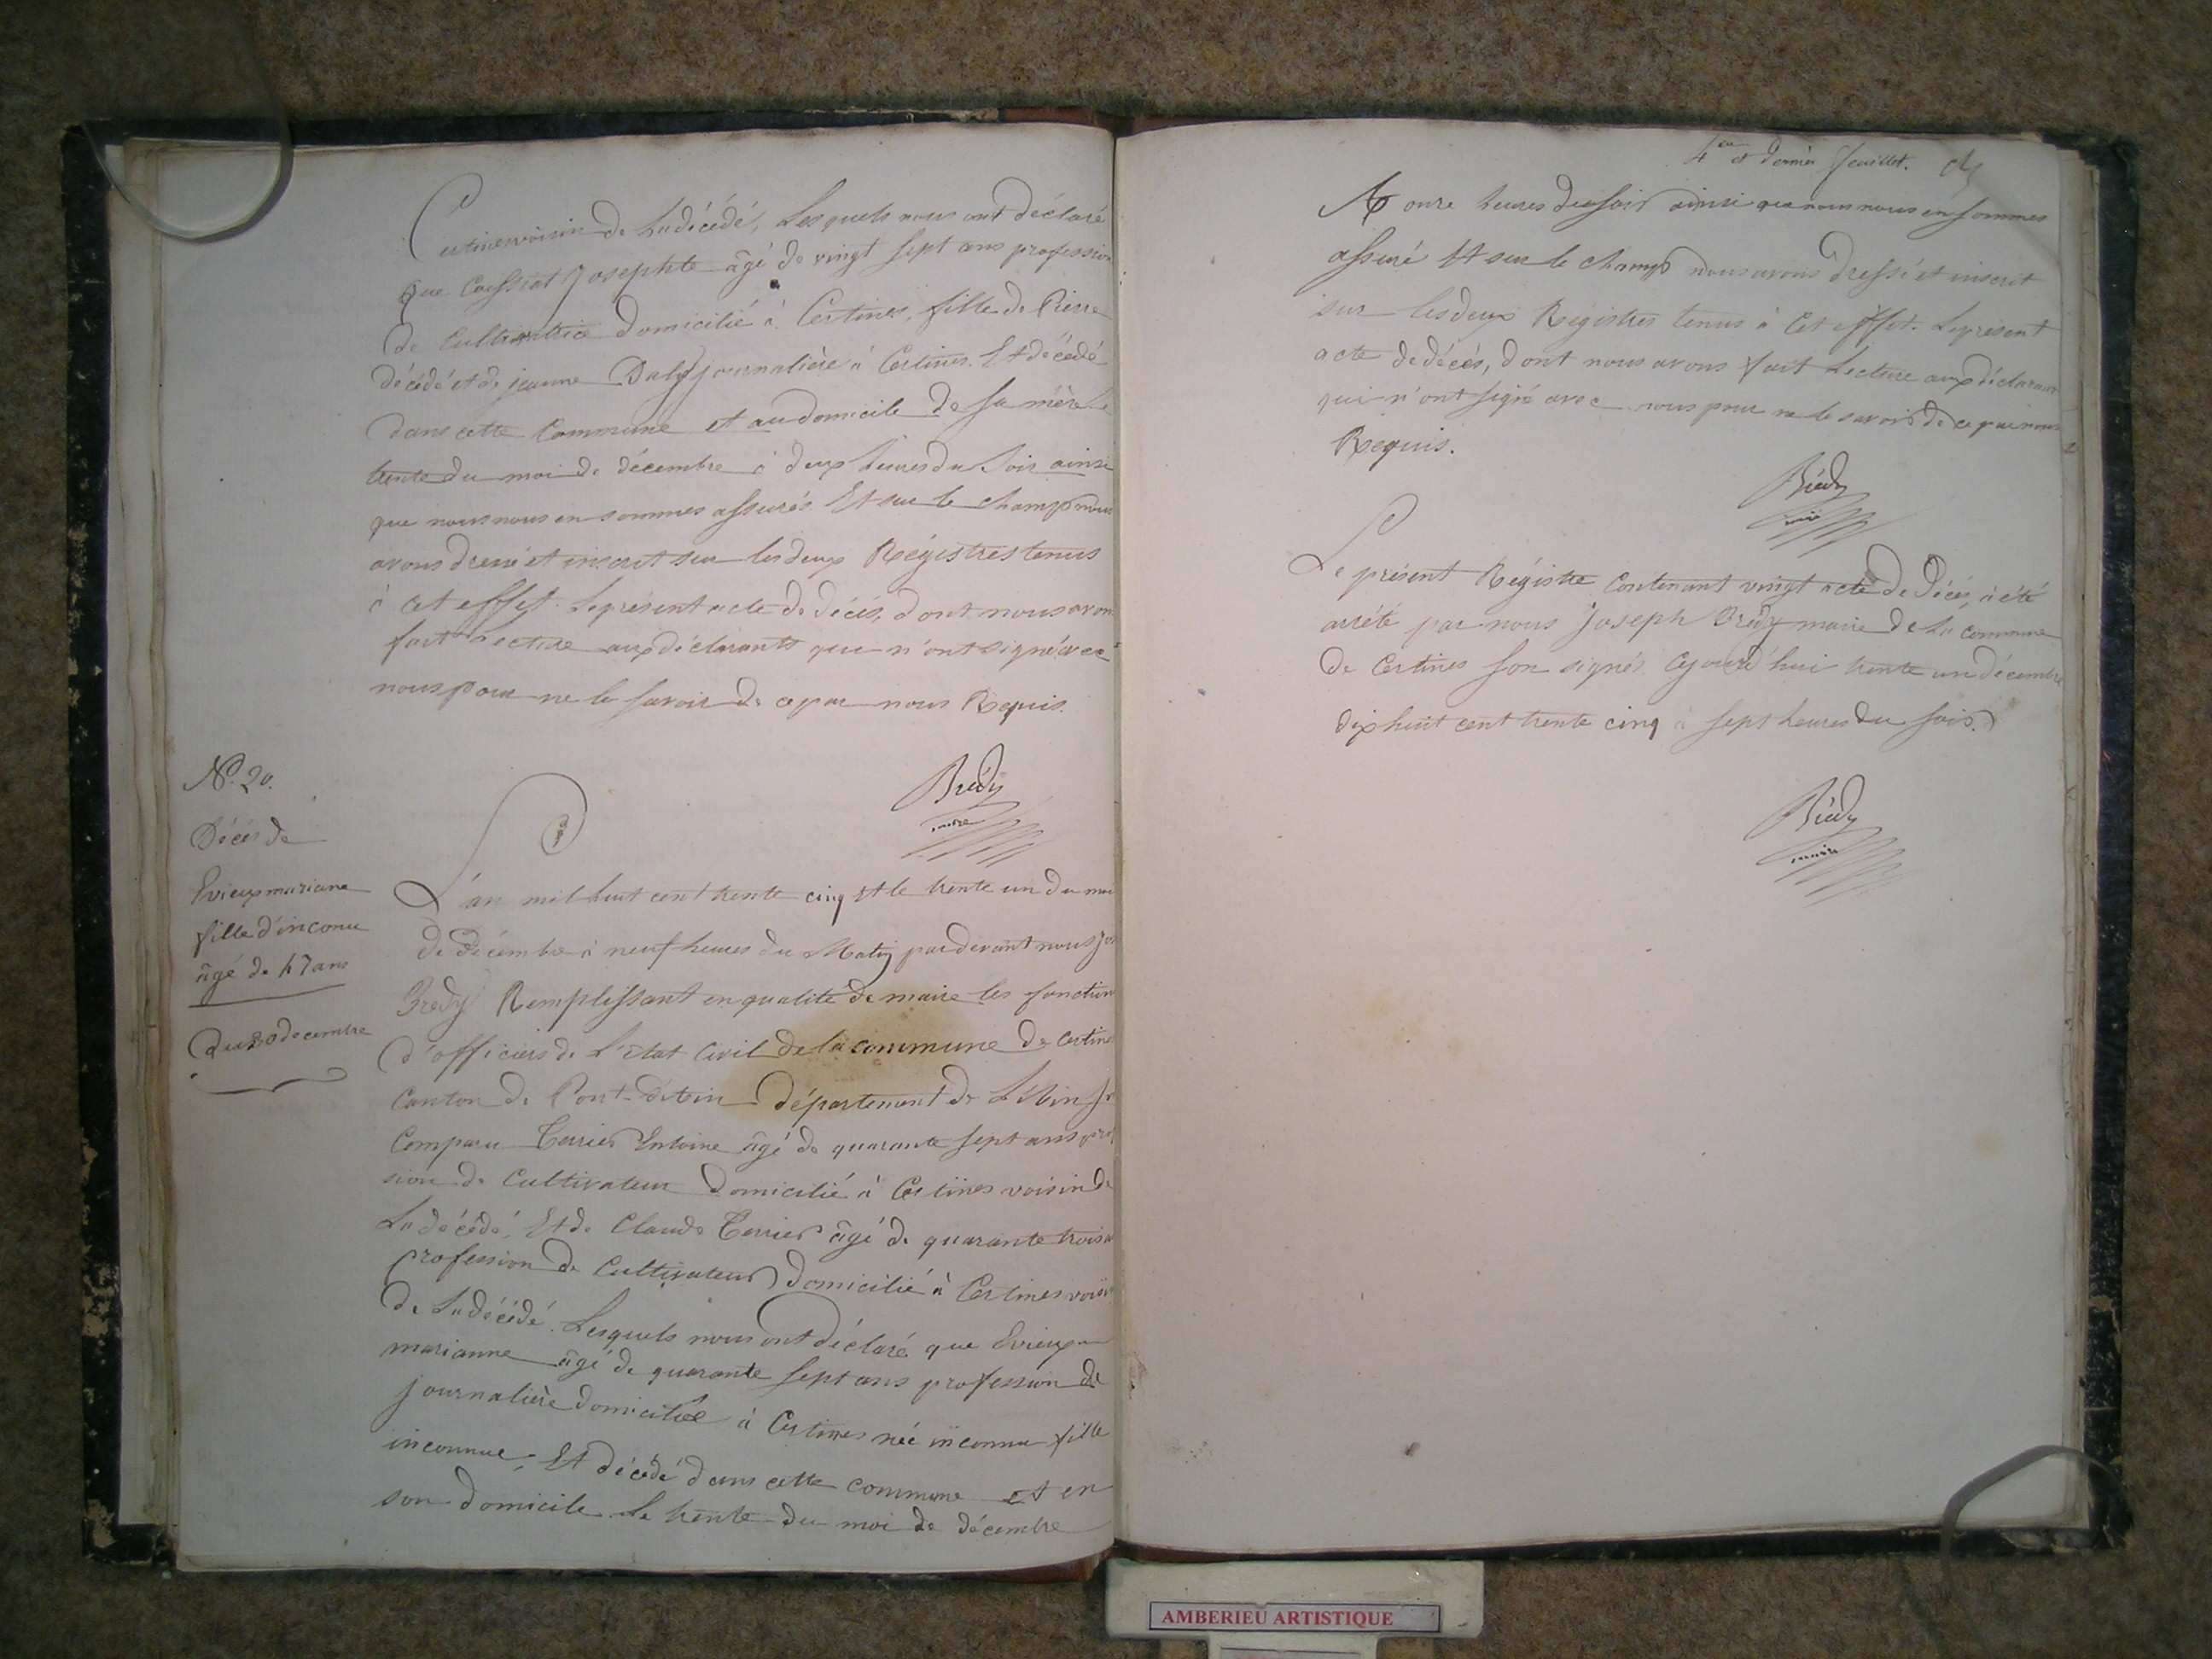 Certines voisin de La décédé, Lesquels nous ont déclaré
que Josephte âgé de vingt sept ans profession
de Cultivatrice domicilié à Certines, fille de Pierre
décédé et de jeanne journalière à Certines. Et décédé
dans cette Commune et au domicile de sa mère Le
trente du moi de décembre à deux heures du Soir ainsi
que nous nous en sommes assurés Et sur le champ nous
avons dressé et inscrit sur les deux Régistres tenus
à cet effet. Le présent acte de décès, dont nous avons
fait Lecture aux déclarants que n'ont signé avec
nous pour ne le savoir de ce par nous Requis.
Brédy
maire
N°. 20.
Décès de
Evieux mariane
fille d'inconu
âgé de 47 ans
Du 30 decembre
L'an mil huit cent trente cinq et le trente un du moi
de décembre à neuf heures du Matin pardevant nous
Brédy Remplissant en qualité de maire les fonction
d'officiers de L'état Civil de la commune de Certines
Canton de Pont-d'étain département de L'Ain
Comparu Terrier Entoine âgé de quarante sept ans
sion de Cultivateur domicilié à Certines voisin de
La décédé, Et de Claude Terrier âgé de quarante trois
profession de Cultivateur domicilié à Certines voisin
de La décédé. Lesquels nous ont déclaré que Evieux
marianne âgé de quarante sept ans profession de
journalière domicilié à Certines née inconnu fille
inconnue; Et décédé dans cette commune et en
son domicile Le trente du moi de décembre
4me et dernier feuillet.
A onze heures du soir ainsi que nous nous en sommes
assuré Et sur le champ nous avons dressé et inscrit
sur les deux Régistres tenus à Cet effet. Le présent
acte de décès, dont nous avons fait Lecture aux déclarans
qui n'ont signé avec nous pour ne le savoir de ce par nous
Requis.
Brédy
maire
Le présent Régistre Contenant vingt acte de décès, a été
arrêté par nous Joseph Brédy maire de La commune
de Certines son signés. Cejourd'hui trente un décembre
dix huit cent trente cinq à sept heures du soir.
Brédy
maire
AMBERIEU ARTISTIQUE